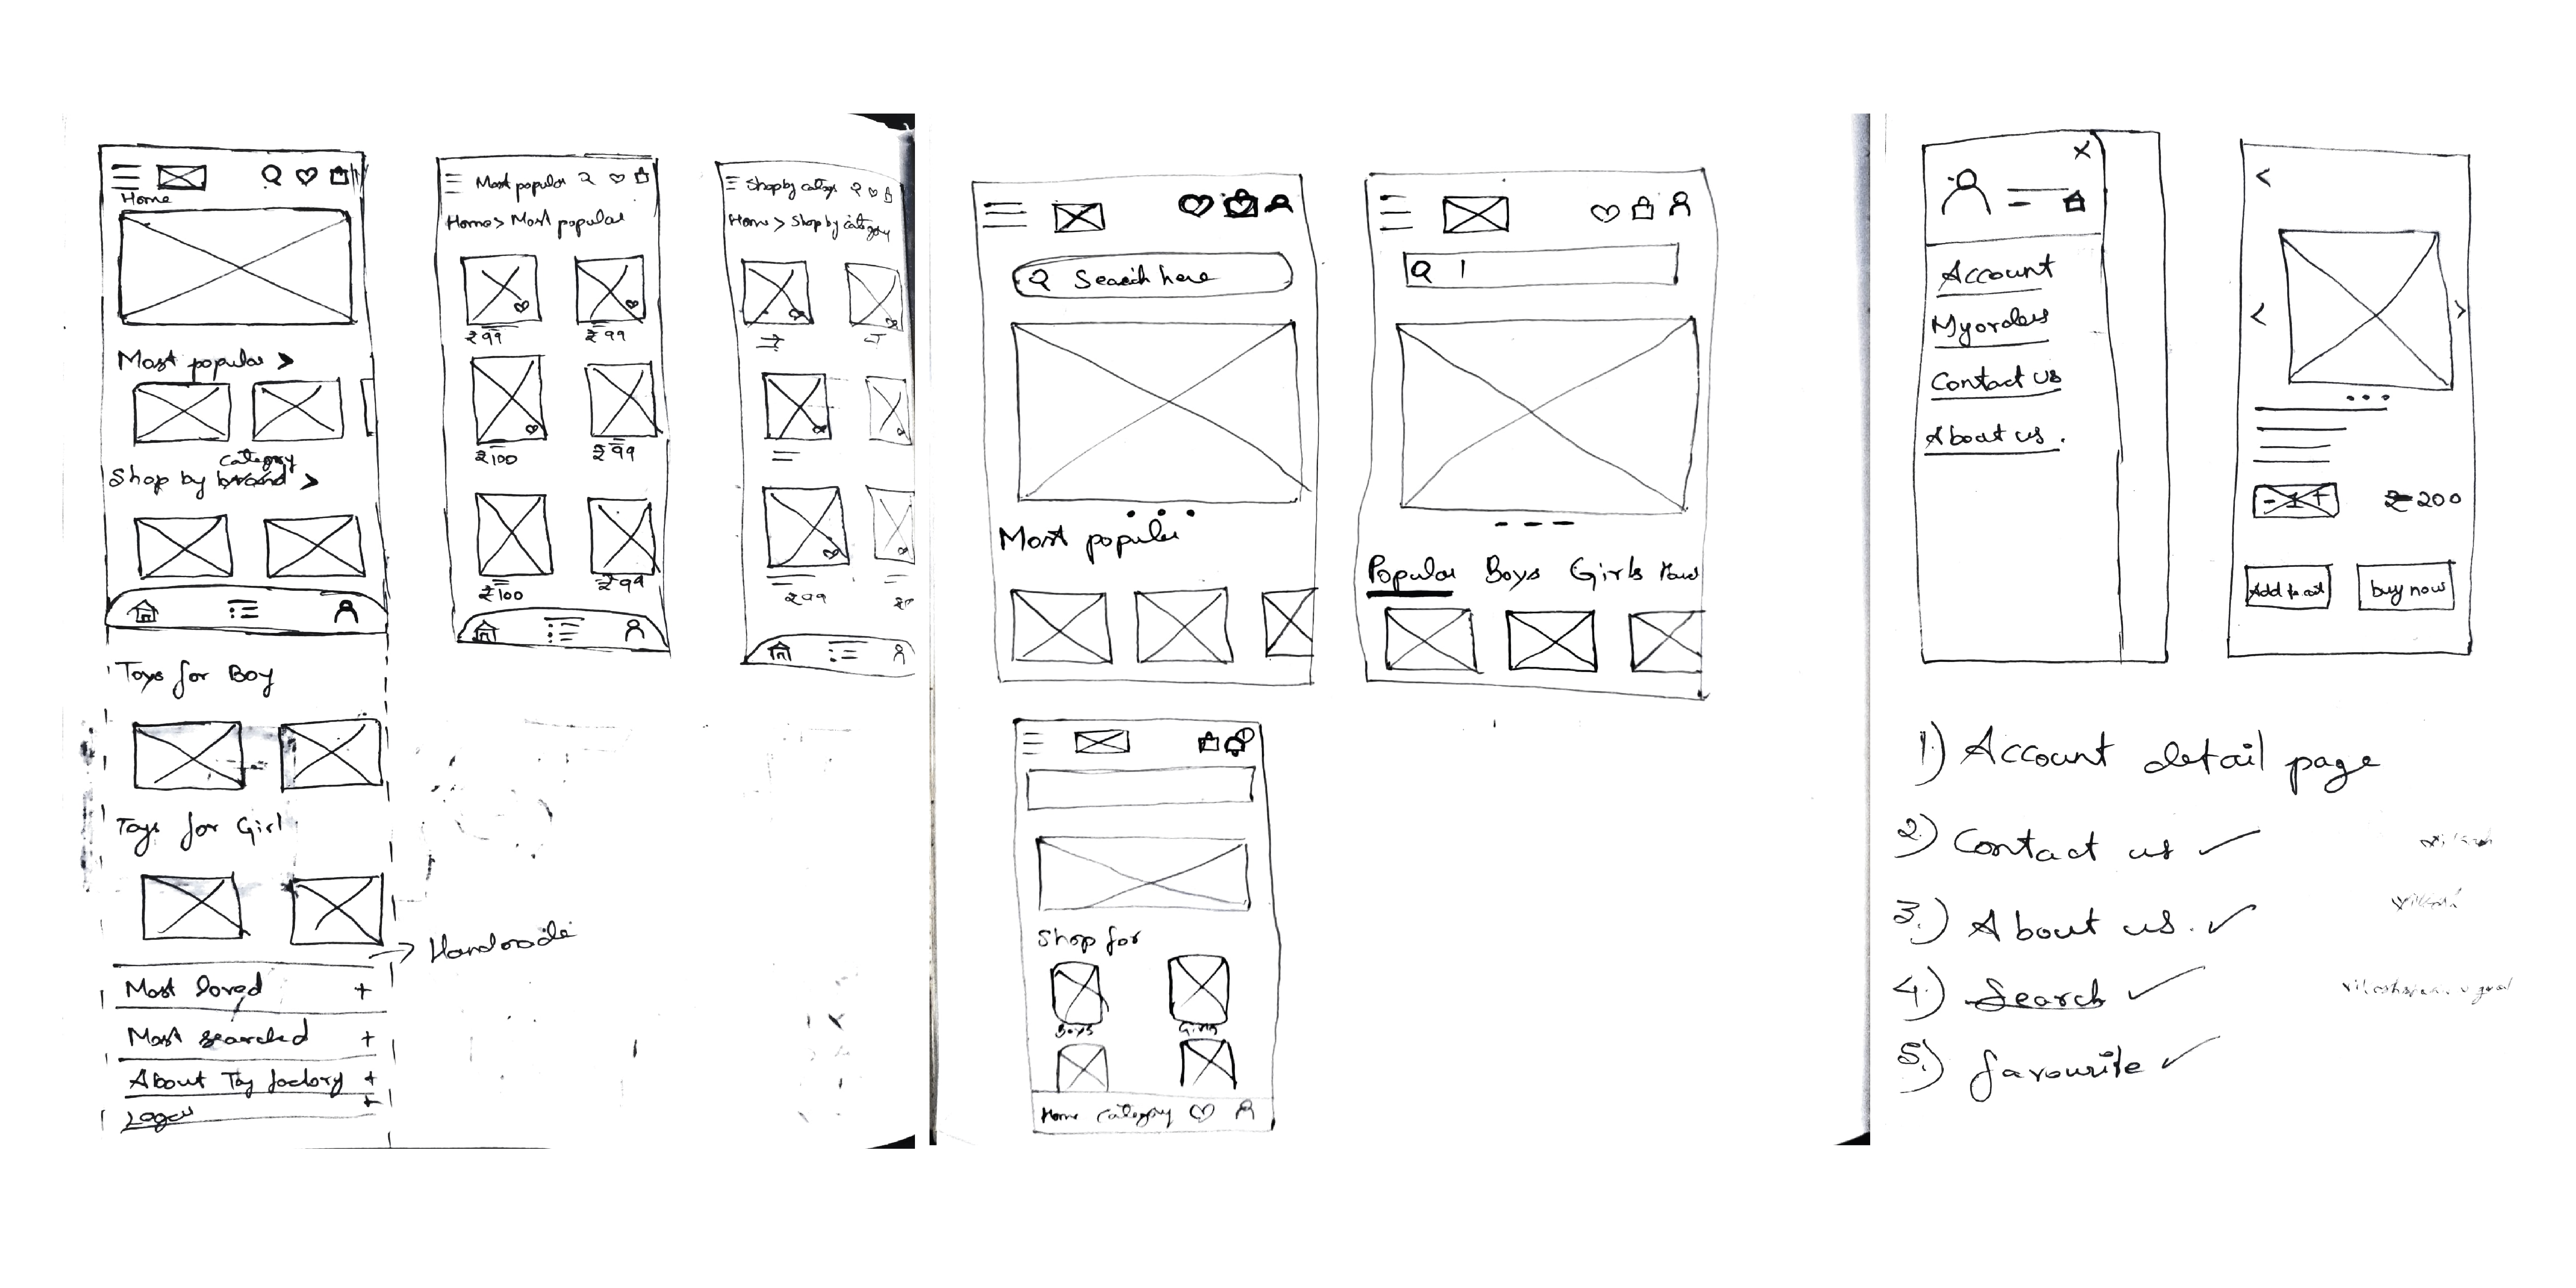 Home
Most popular >
category
Shop by brand >
Toys for Boy
Toys for Girl
Most loved +
Most searched +
About Toy factory +
Logos +
Most popular
Home > Most popular
₹99 ₹99
₹100 ₹99
₹100 ₹99
→ Handmade
Shop by category
Home > Shop by category
₹99
Search here
Most popular
Popular Boys Girls
Shop for
Boys Girls
Home category
X
Account
My orders
Contact us
About us.
<
< >
- 1 + ₹200
Add to cart buy now
1) Account detail page
2) Contact us ✓
3.) About us. ✓
4.) Search ✓
5.) favourite ✓